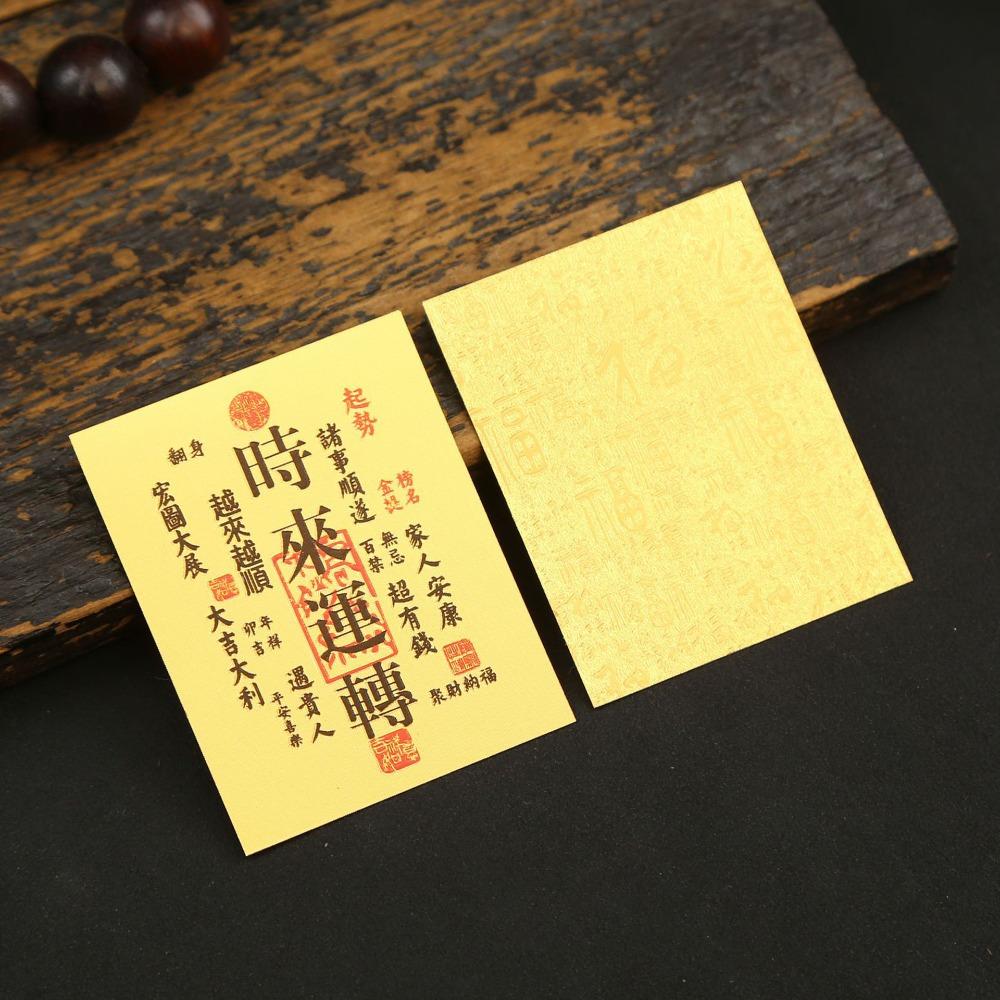 時來運轉
起勢
諸事順遂
榜名
金題
家人安康
無忌
百禁
超有錢
聚財納福
翻身
宏圖大展
越來越順
大吉大利
年祥
卯吉
遇貴人
平安喜樂
福
福
福
福